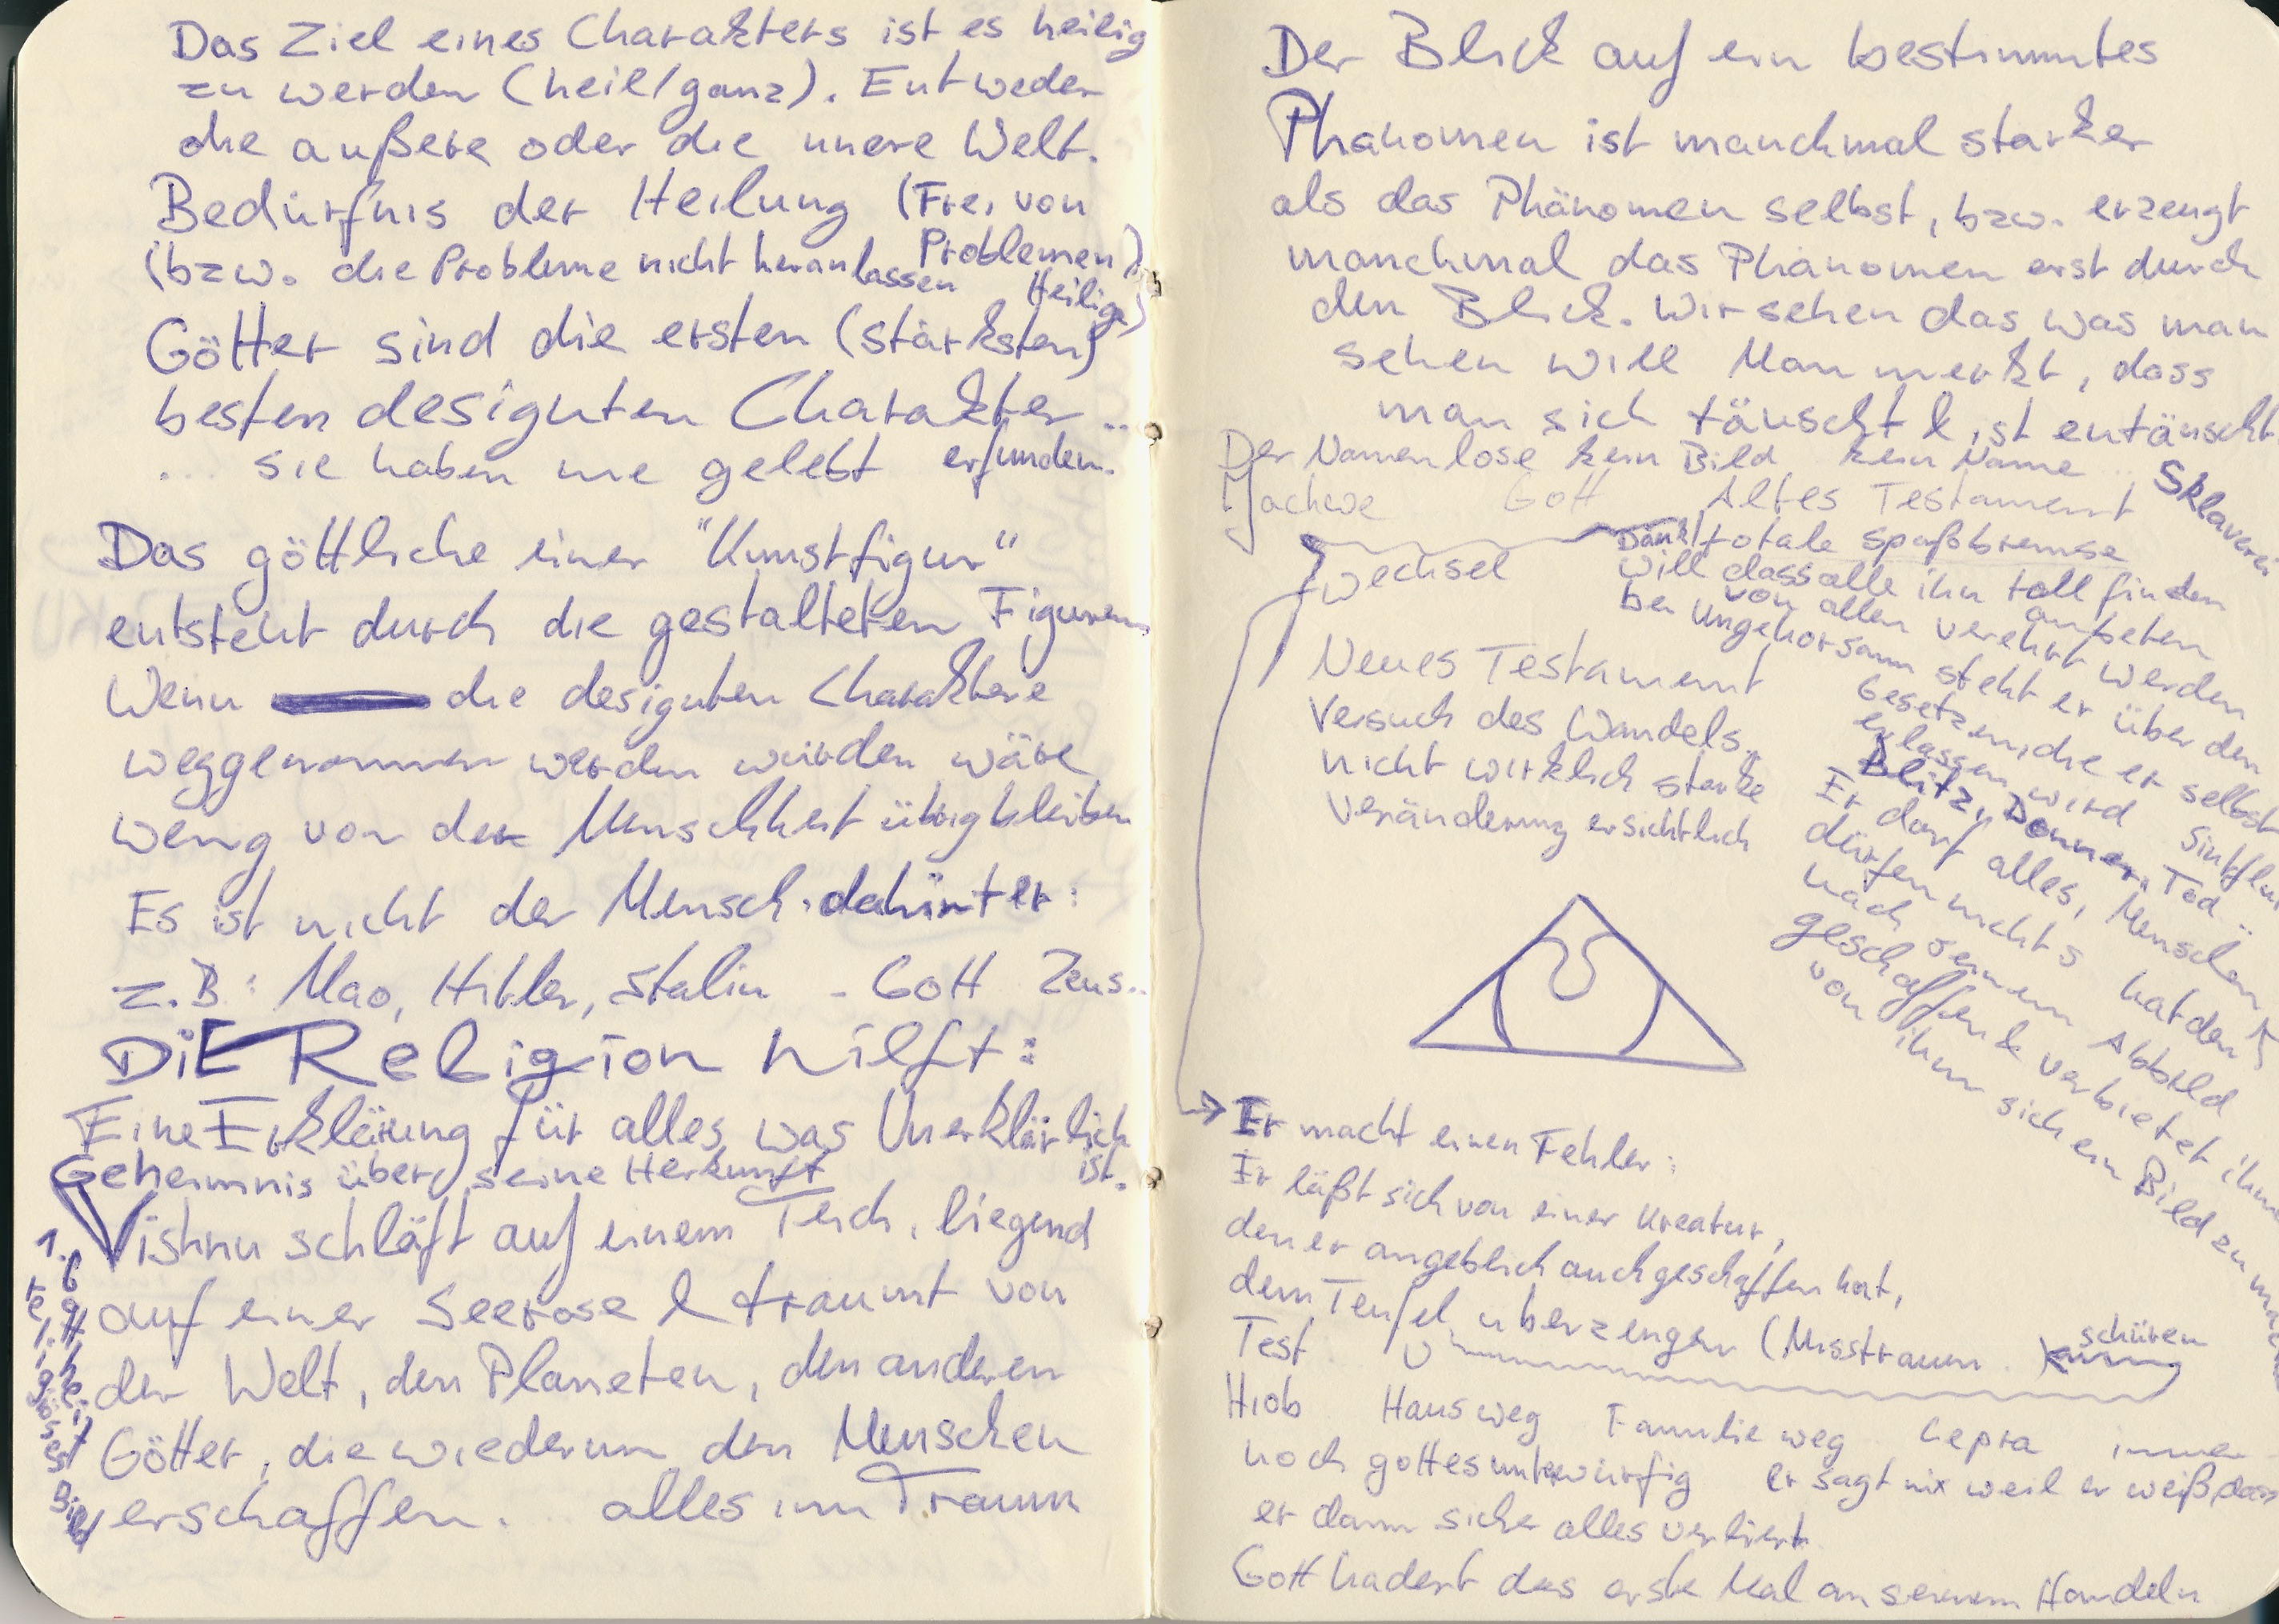 Das Ziel eines Charakters ist es heilig
zu werden (heil/ganz). Entweder
die außere oder die innere Welt.
Bedürfnis der Heilung (Frei von
Problemen)
(bzw. die Probleme nicht heranlassen
Heilige)
Götter sind die ersten (stärksten)
besten designten Charakter ..
... sie haben nie gelebt erfunden.
Das göttliche einer "Kunstfigur"
entsteht durch die gestalteten Figuren
Wenn die designten Charaktere
weggenommen werden würden wäre
wenig von der Menschheit übrigbleiben
Es ist nicht der Mensch dahinter:
z.B: Mao, Hitler, Stalin - Gott Zeus..
DiE Religion hilft:
Eine Erklärung für alles was Unerklärlich
ist.
Geheimnis über seine Herkunft
Vishnu schläft auf einem Teich, liegend
auf einer Seerose & träumt von
der Welt, den Planeten, den anderen
Götter, die wiederum den Menschen
erschaffen. ... alles im Traum
1. Gottheit
religiöses
Bild
Der Blick auf ein bestimmtes
Phänomen ist manchmal starker
als das Phänomen selbst, bzw. erzeugt
manchmal das Phänomen erst durch
den Blick. Wir sehen das was man
sehen will Man merkt, dass
man sich täuscht & ist entäuscht
Der Namenlose kein Bild, kein Name ..
Jachwe Gott Altes Testament
Sklaverei
totale Spaßbremse
will dass alle ihn toll finden
anbeten
von allen verehrt werden
bei Ungehorsam steht er über den
Gesetzen, die er selbst
erlassen wird Sintflut
Blitz, Donner, Tod ..
Er darf alles, Menschen
dürfen nichts hat den
nach seinem Abbild
geschaffen & verbietet ihm
von ihm sich ein Bild zu
wechsel
Neues Testament
Versuch des Wandels
nicht wirklich starke
Veränderung ersichtlich
Er macht einen Fehler:
Er läßt sich von einer Kreatur,
den er angeblich auch geschaffen hat,
dem Teufel überzeugen (Misstrauen
schüren
Test
Hiob Haus weg Familie weg Lepra immer
noch gottesunterwürfig er sagt nix weil er weiß dass
er dann sicher alles verliert
Gott hadert das erste Mal an seinem Handeln